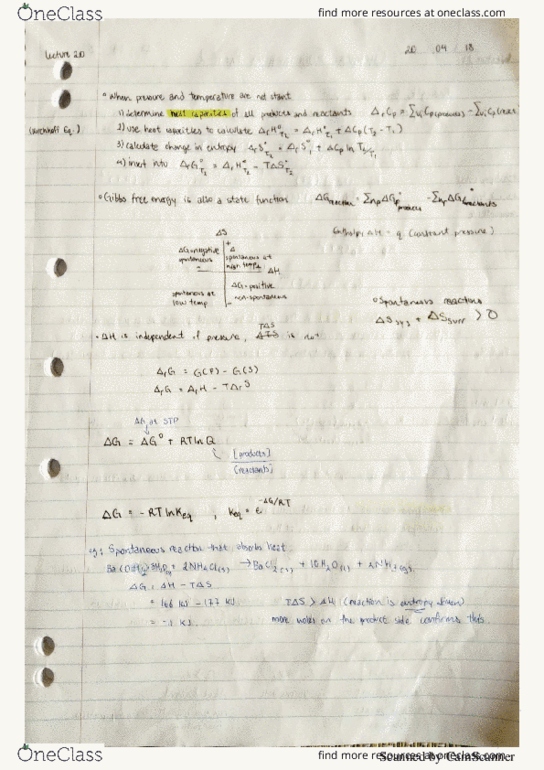 OneClass
find more resources at oneclass.com
Lecture 20
20 04 / 18
• When pressure and temperature are not stant
1) determine heat capacities of all products and reactants ΔrCp = ΣviCp(products) - ΣviCp(react.
(Kirchhoff Eq.) 2) use heat capacities to calculate ΔrH°T2 = ΔrH°T1 + ΔCp(T2 - T1)
3) calculate change in entropy ΔrS°T2 = ΔrS°T1 + ΔCp ln T2/T1
4) insert into ΔrG°T2 = ΔrH°T2 - TΔS°T2
• Gibbs free energy is also a state function ΔGreaction = ΣnpΔG°products - ΣnrΔG°reactants
Enthalpy ΔH = q (constant pressure)
ΔS
+
ΔG=negative spontaneous
spontaneous at high temp
- ΔH
spontaneous at low temp
ΔG=positive non-spontaneous
• Spontaneous reaction
ΔSsys + ΔSsurr > 0
• ΔH is independent of pressure, TΔS is not
ΔrG = G(P) - G(S)
ΔrG = ΔrH - TΔrS
ΔG at STP
ΔG = ΔG° + RT ln Q
[products]
[reactants]
ΔG = -RT ln Keq , Keq = e^-ΔG/RT
eg: Spontaneous reaction that absorbs heat
Ba(OH)2·8H2O(s) + 2NH4Cl(s) → BaCl2(s) + 10H2O(l) + 2NH3(g)
ΔG = ΔH - TΔS
= 166 kJ - 177 kJ TΔS > ΔH (reaction is entropy driven)
= -11 kJ more moles on the product side confirms this.
OneClass
find more resources at oneclass.com
Scanned by CamScanner